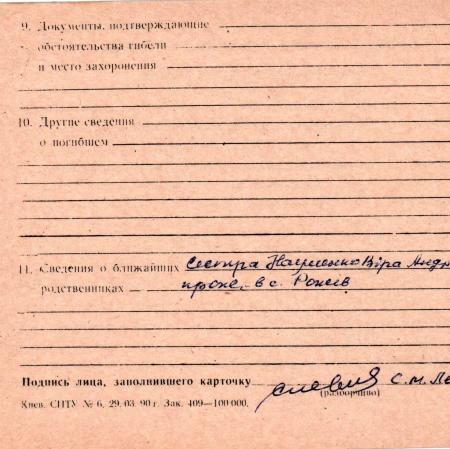 9. Документы, подтверждающие
обстоятельства гибели
и место захоронения
10. Другие сведения
о погибшем
11. Сведения о ближайших Сестра Науменко Віра Андр
родственниках прожс. в с. Рожів
Подпись лица, заполнившего карточку С. М. Ле
(разборчиво)
Киев. СПТУ № 6, 29. 03. 90 г. Зак. 409—100 000.